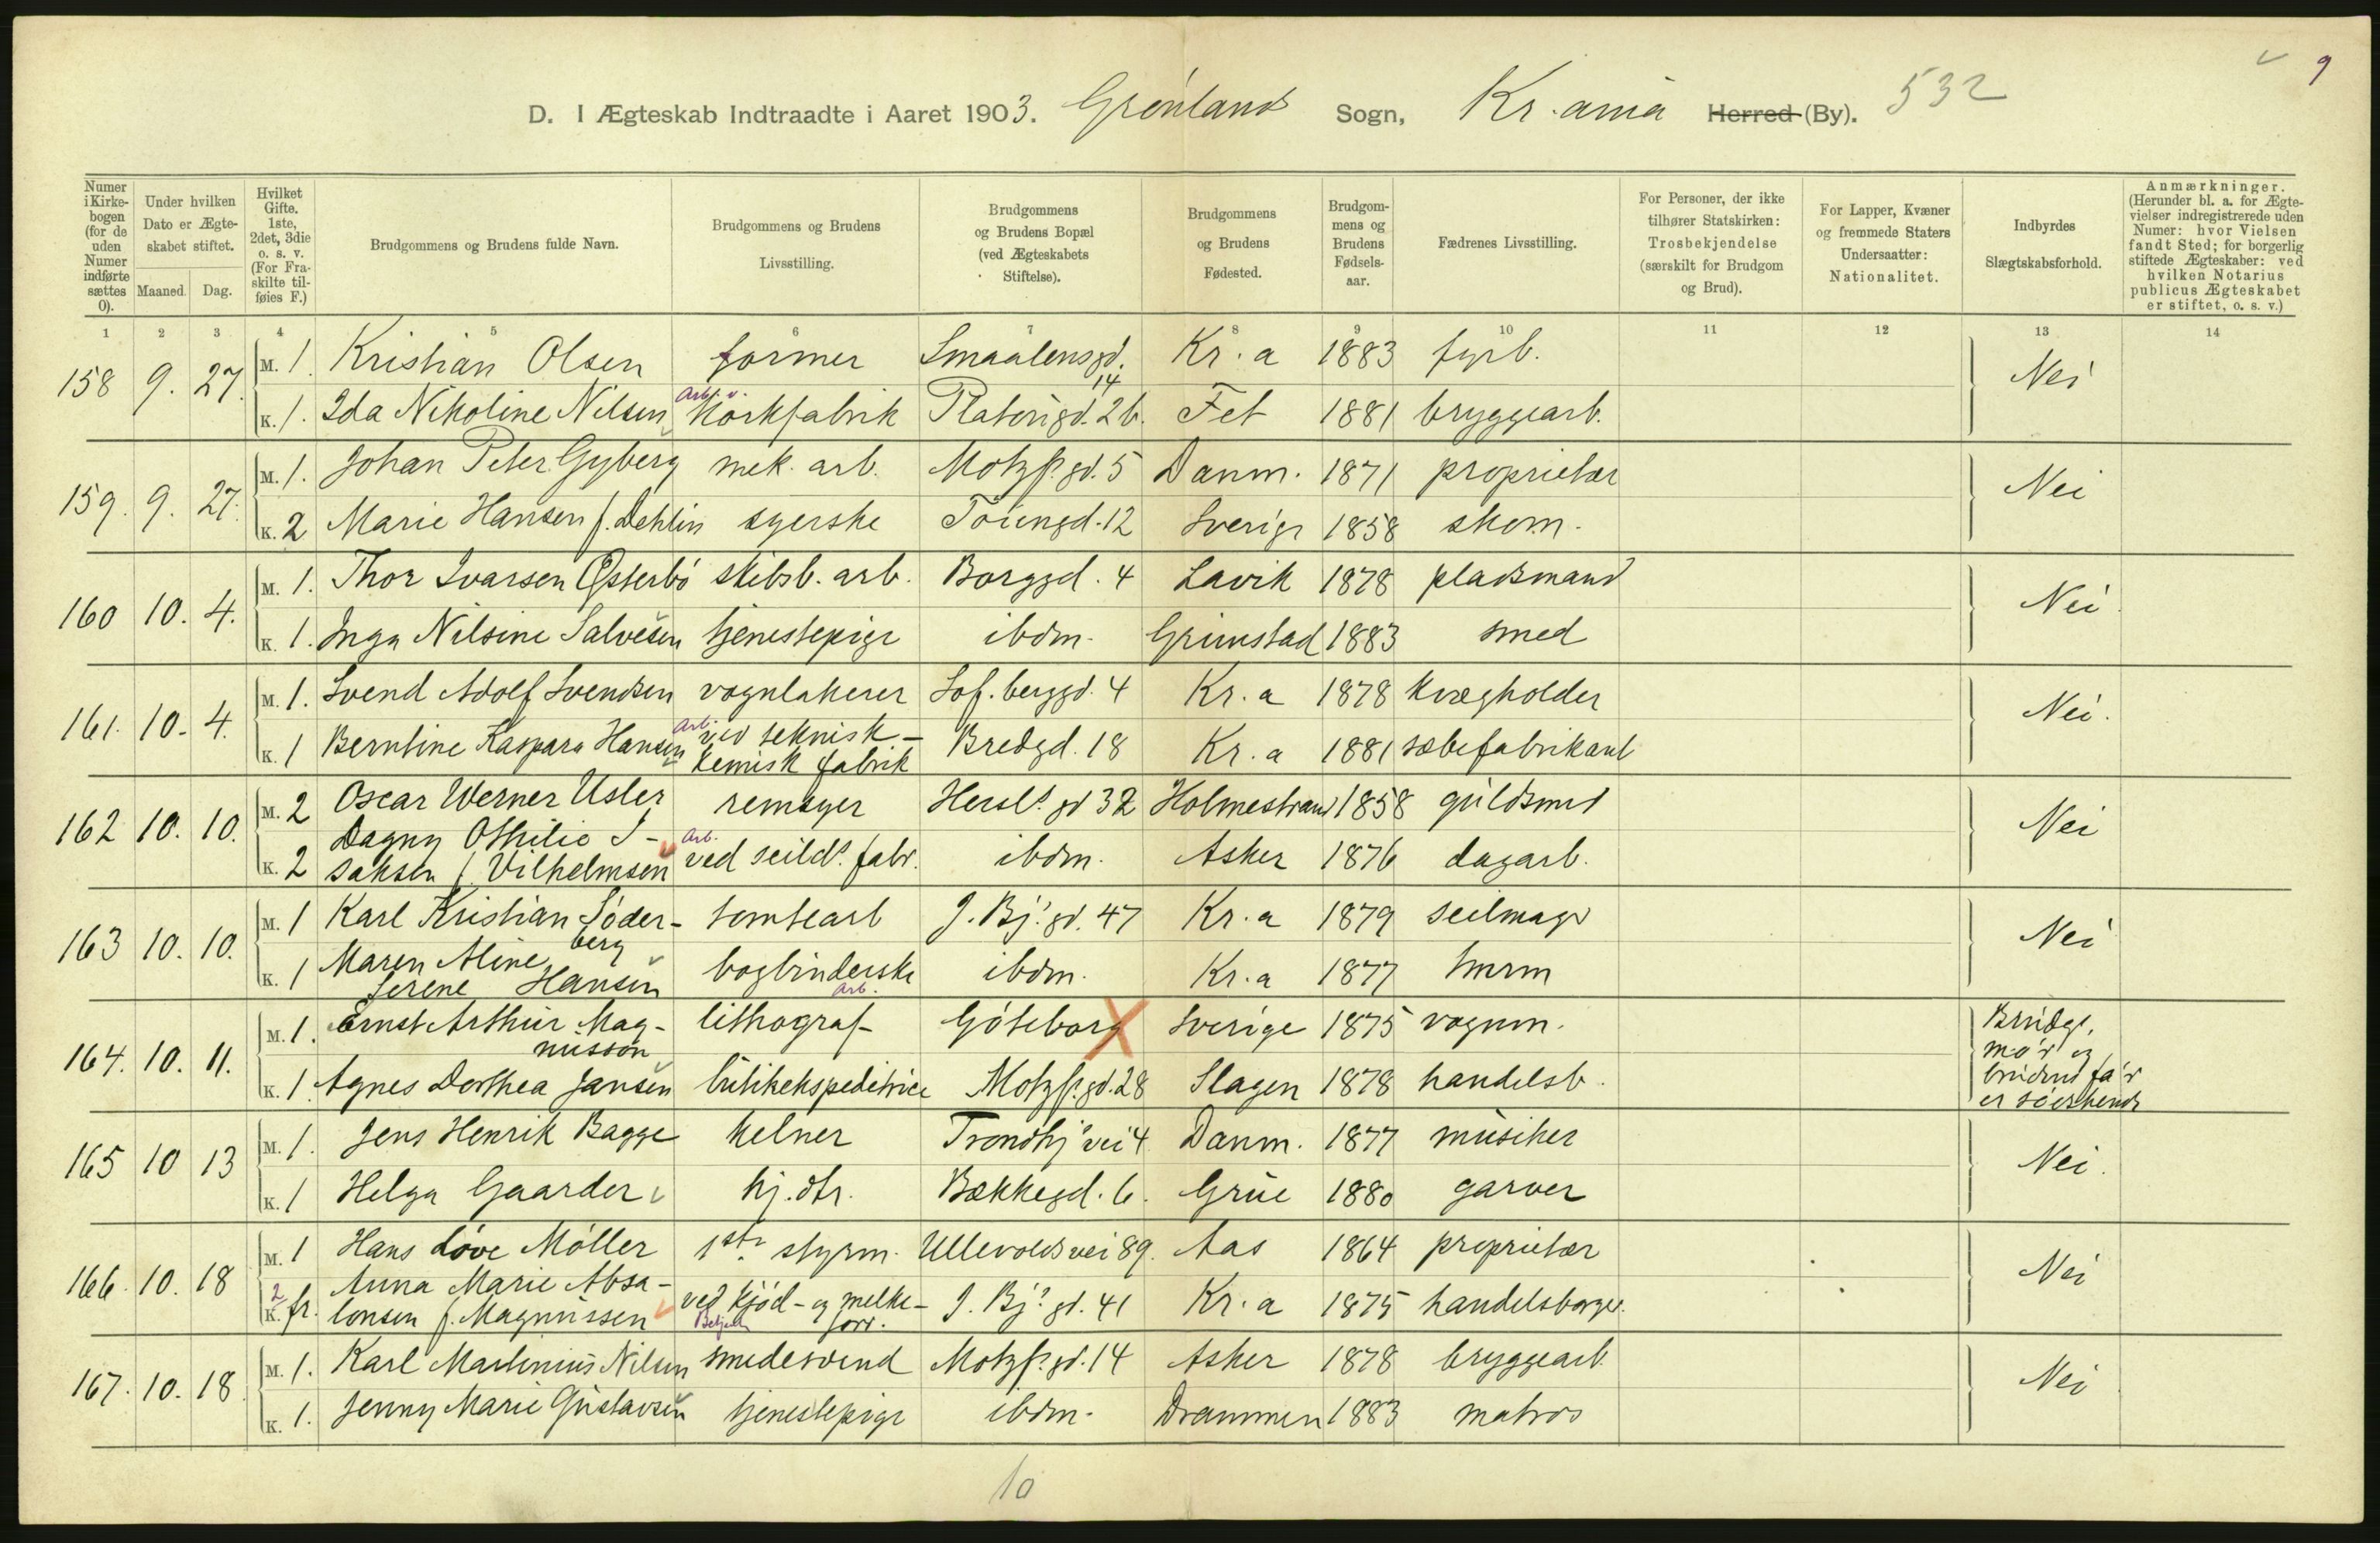 9
D. I Ægteskab Indtraadte i Aaret 1903. Grönland Sogn, Kr.ania Herred (By). 532
Numer i Kirkebogen (for de uden Numer indførte sættes 0).
Under hvilken Dato er Ægteskabet stiftet.
Maaned. Dag.
Hvilket Gifte. 1ste, 2det, 3die o. s. v. (For Fraskilte tilføies F.)
Brudgommens og Brudens fulde Navn.
Brudgommens og Brudens Livsstilling.
Brudgommens og Brudens Bopæl (ved Ægteskabets Stiftelse).
Brudgommens og Brudens Fødested.
Brudgommens og Brudens Fødselsaar.
Fædrenes Livsstilling.
For Personer, der ikke tilhører Statskirken: Trosbekjendelse (særskilt for Brudgom og Brud).
For Lapper, Kvæner og fremmede Staters Undersaatter: Nationalitet.
Indbyrdes Slægtskabsforhold.
Anmærkninger. (Herunder bl. a. for Ægtevielser indregistrerede uden Numer: hvor Vielsen fandt Sted; for borgerlig stiftede Ægteskaber: ved hvilken Notarius publicus Ægteskabet er stiftet, o. s. v.)
1 2 3 4 5 6 7 8 9 10 11 12 13 14
158 9. 27. M. 1. Kristian Olsen former Smaalensgd. 14 Kr.a 1883 fyrb. Nei
K. 1. Ida Nikoline Nilsen Arb. v. Korkfabrik Platousgd. 26. Fet 1881 bryggearb.
159. 9. 27. M. 1. Johan Peter Gyberg mek. arb. Motzf. gd. 5 Danm. 1871 proprietær Nei
K. 2 Marie Hansen f. Dehlin syerske Töiengd. 12 Sverige 1858 skom.
160 10. 4. M. 1. Thor Ivarsen Österbö skibsb. arb. Borggd. 4 Lavik 1878 pladsmand Nei
K. 1. Inga Nilsine Salvesen tjenestepige ibdm. Grimstad 1883 smed
161. 10. 4. M. 1. Svend Adolf Svendsen vognlakerer Sof. berggd. 4 Kr.a 1878 kvægholder Nei.
K. 1 Berntine Kaspara Hansen Arb. ved teknisk-kemisk fabrik Bredgd. 18 Kr.a 1881 sæbefabrikant
162 10. 10. M. 2 Oscar Werner Usler remsyer Hersl. gd 32 Holmestrand 1858 guldsmed Nei
K. 2 Dagny Othilie I-
saksen f. Vilhelmsen Arb. ved seilds. fabr. ibdm. Asker 1876 dagarb.
163 10. 10. M. 1 Karl Kristian Söder-
berg tomtearb J. Bj. gd. 47 Kr.a 1879 seilmager Nei
K. 1 Maren Aline
Serene Hansen bogbinderske arb. ibdm. Kr.a 1877 tmrm
164. 10. 11. M. 1. Ernst Arthur Mag-
nusson lithograf Göteborg Sverige 1875 vognm. Brudg. mo'r og brudens fa'r er söskende
K. 1. Agnes Dorthea Jansen butikekspeditrice Motzf. gd. 28 Slagen 1878 handelsb.
165 10 13 M. 1. Jens Henrik Bagge kelner Trondhj. vei 4 Danm. 1877 musiker Nei.
K. 1 Helga Gaarder hj. dtr. Bækkegd. 6. Grue 1880 garver
166. 10. 18 M. 1 Hans Löve Möller 1ste styrm. Ullevoldsvei 89. Aas 1864 proprietær Nei
K. 2 fr. Anna Marie Absa-
lonsen f. Magnussen ved kjöd- og melke-
forr. J. Bj. gd. 41 Kr.a 1875 handelsborger.
167. 10. 18 M. 1. Karl Martinius Nilsen smedesvend Motzf. gd. 14 Asker 1878 bryggearb. Nei
K. 1. Jenny Marie Gustavsen tjenestepige ibdm. Drammen 1883 matros
10